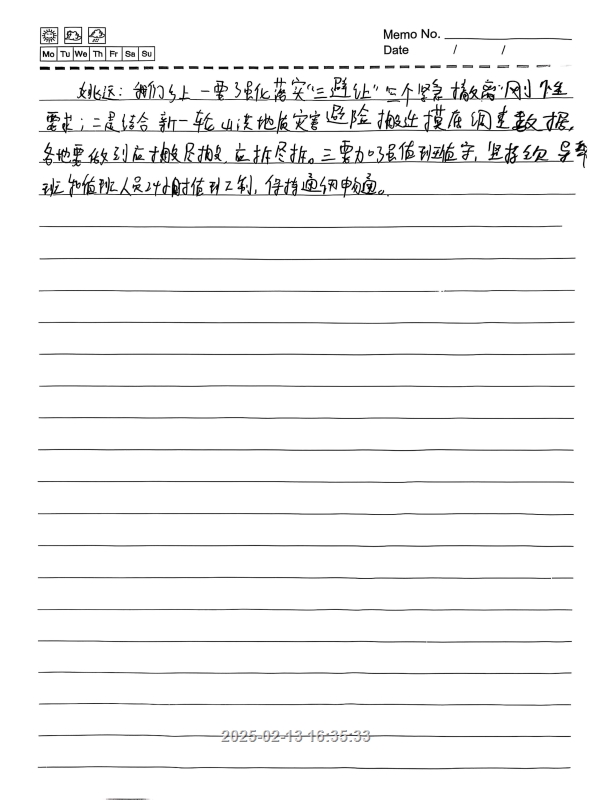 Memo No.
Mo Tu We Th Fr Sa Su
Date / /
姚远：我们乡上一要强化落实“三避让”“三个紧急撤离”刚性
要求；二是结合新一轮山洪地质灾害避险搬迁摸底调查数据，
各地要做到应搬尽搬，应拆尽拆。三要加强值班值守，坚持领导带
班和值班人员24小时值班工制，保持通讯畅通。
2025-02-13 16:35:33